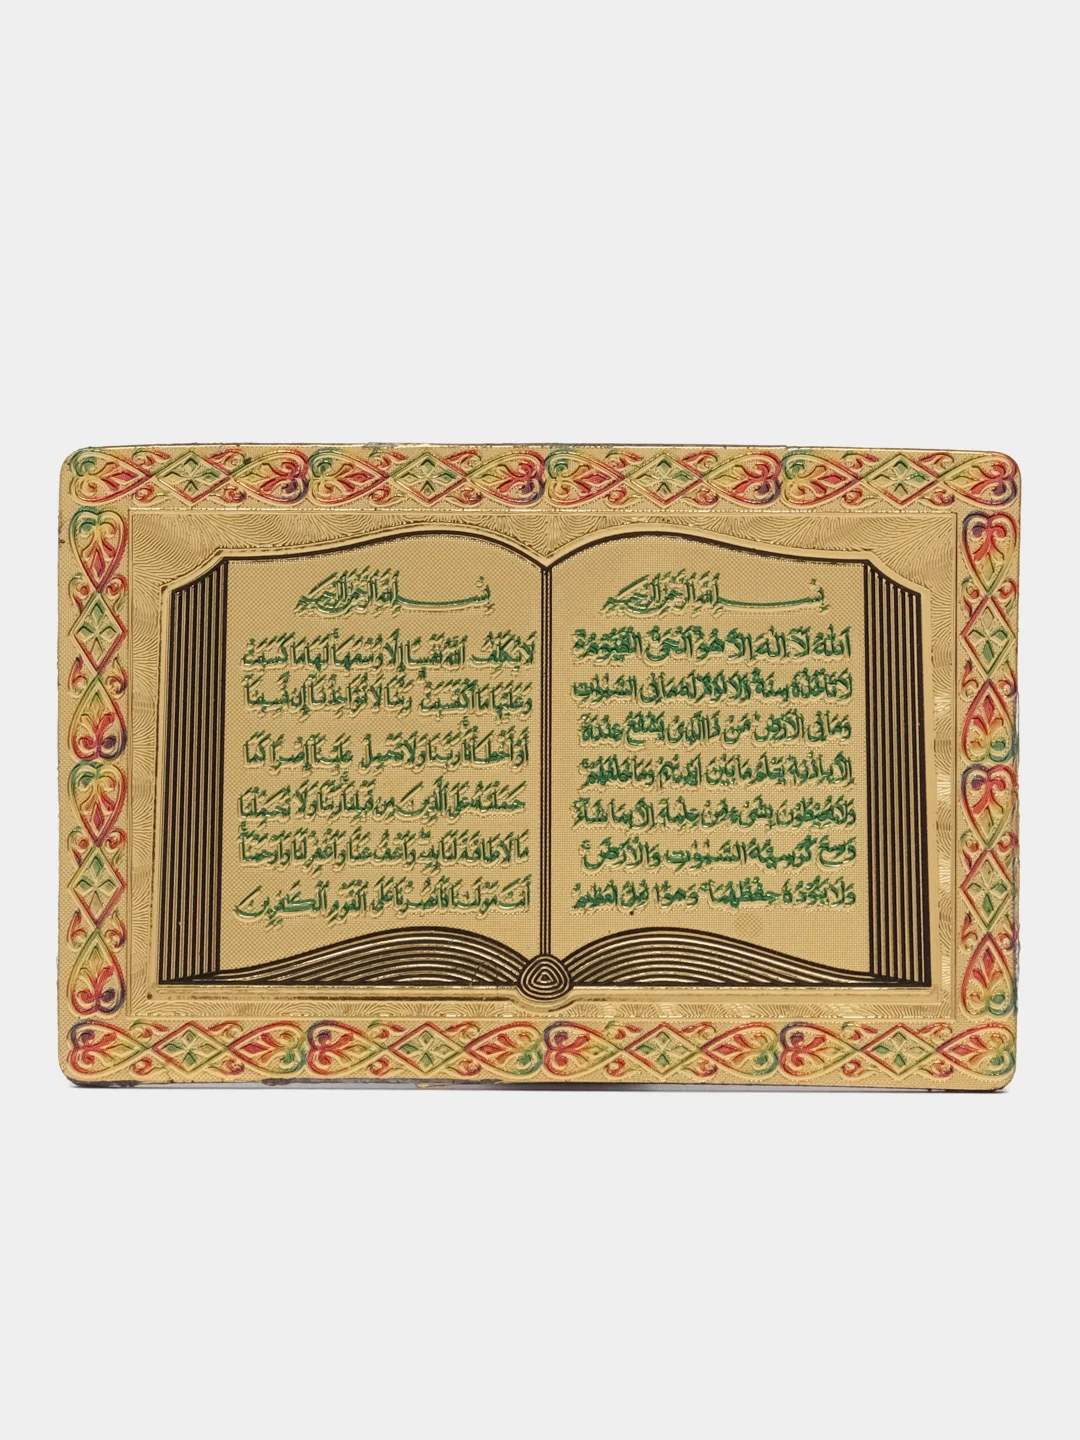 بِسْمِ اللهِ الرَّحْمٰنِ الرَّحِيمِ
اَللهُ لَا اِلٰهَ اِلَّا هُوَ اَلْحَيُّ الْقَيُّومُ
لَا تَأْخُذُهُ سِنَةٌ وَلَا نَوْمٌ لَهُ مَا فِي السَّمٰوَاتِ
وَمَا فِي الْاَرْضِ مَنْ ذَا الَّذِي يَشْفَعُ عِنْدَهُ
اِلَّا بِاِذْنِهِ يَعْلَمُ مَا بَيْنَ اَيْدِيهِمْ وَمَا خَلْفَهُمْ
وَلَا يُحِيطُونَ بِشَيْءٍ مِنْ عِلْمِهِ اِلَّا بِمَا شَاءَ
وَسِعَ كُرْسِيُّهُ السَّمٰوَاتِ وَالْاَرْضَ
وَلَا يَؤُدُهُ حِفْظُهُمَا وَهُوَ الْعَلِيُّ الْعَظِيمُ
بِسْمِ اللهِ الرَّحْمٰنِ الرَّحِيمِ
لَا يُكَلِّفُ اللهُ نَفْسًا إِلَّا وُسْعَهَا لَهَا مَا كَسَبَتْ
وَعَلَيْهَا مَا اكْتَسَبَتْ رَبَّنَا لَا تُؤَاخِذْنَا إِنْ نَسِينَا
أَوْ أَخْطَأْنَا رَبَّنَا وَلَا تَحْمِلْ عَلَيْنَا إِصْرًا كَمَا
حَمَلْتَهُ عَلَى الَّذِينَ مِنْ قَبْلِنَا رَبَّنَا وَلَا تُحَمِّلْنَا
مَا لَا طَاقَةَ لَنَا بِهِ وَاعْفُ عَنَّا وَاغْفِرْ لَنَا وَارْحَمْنَا
أَنْتَ مَوْلٰىنَا فَانْصُرْنَا عَلَى الْقَوْمِ الْكٰفِرِينَ